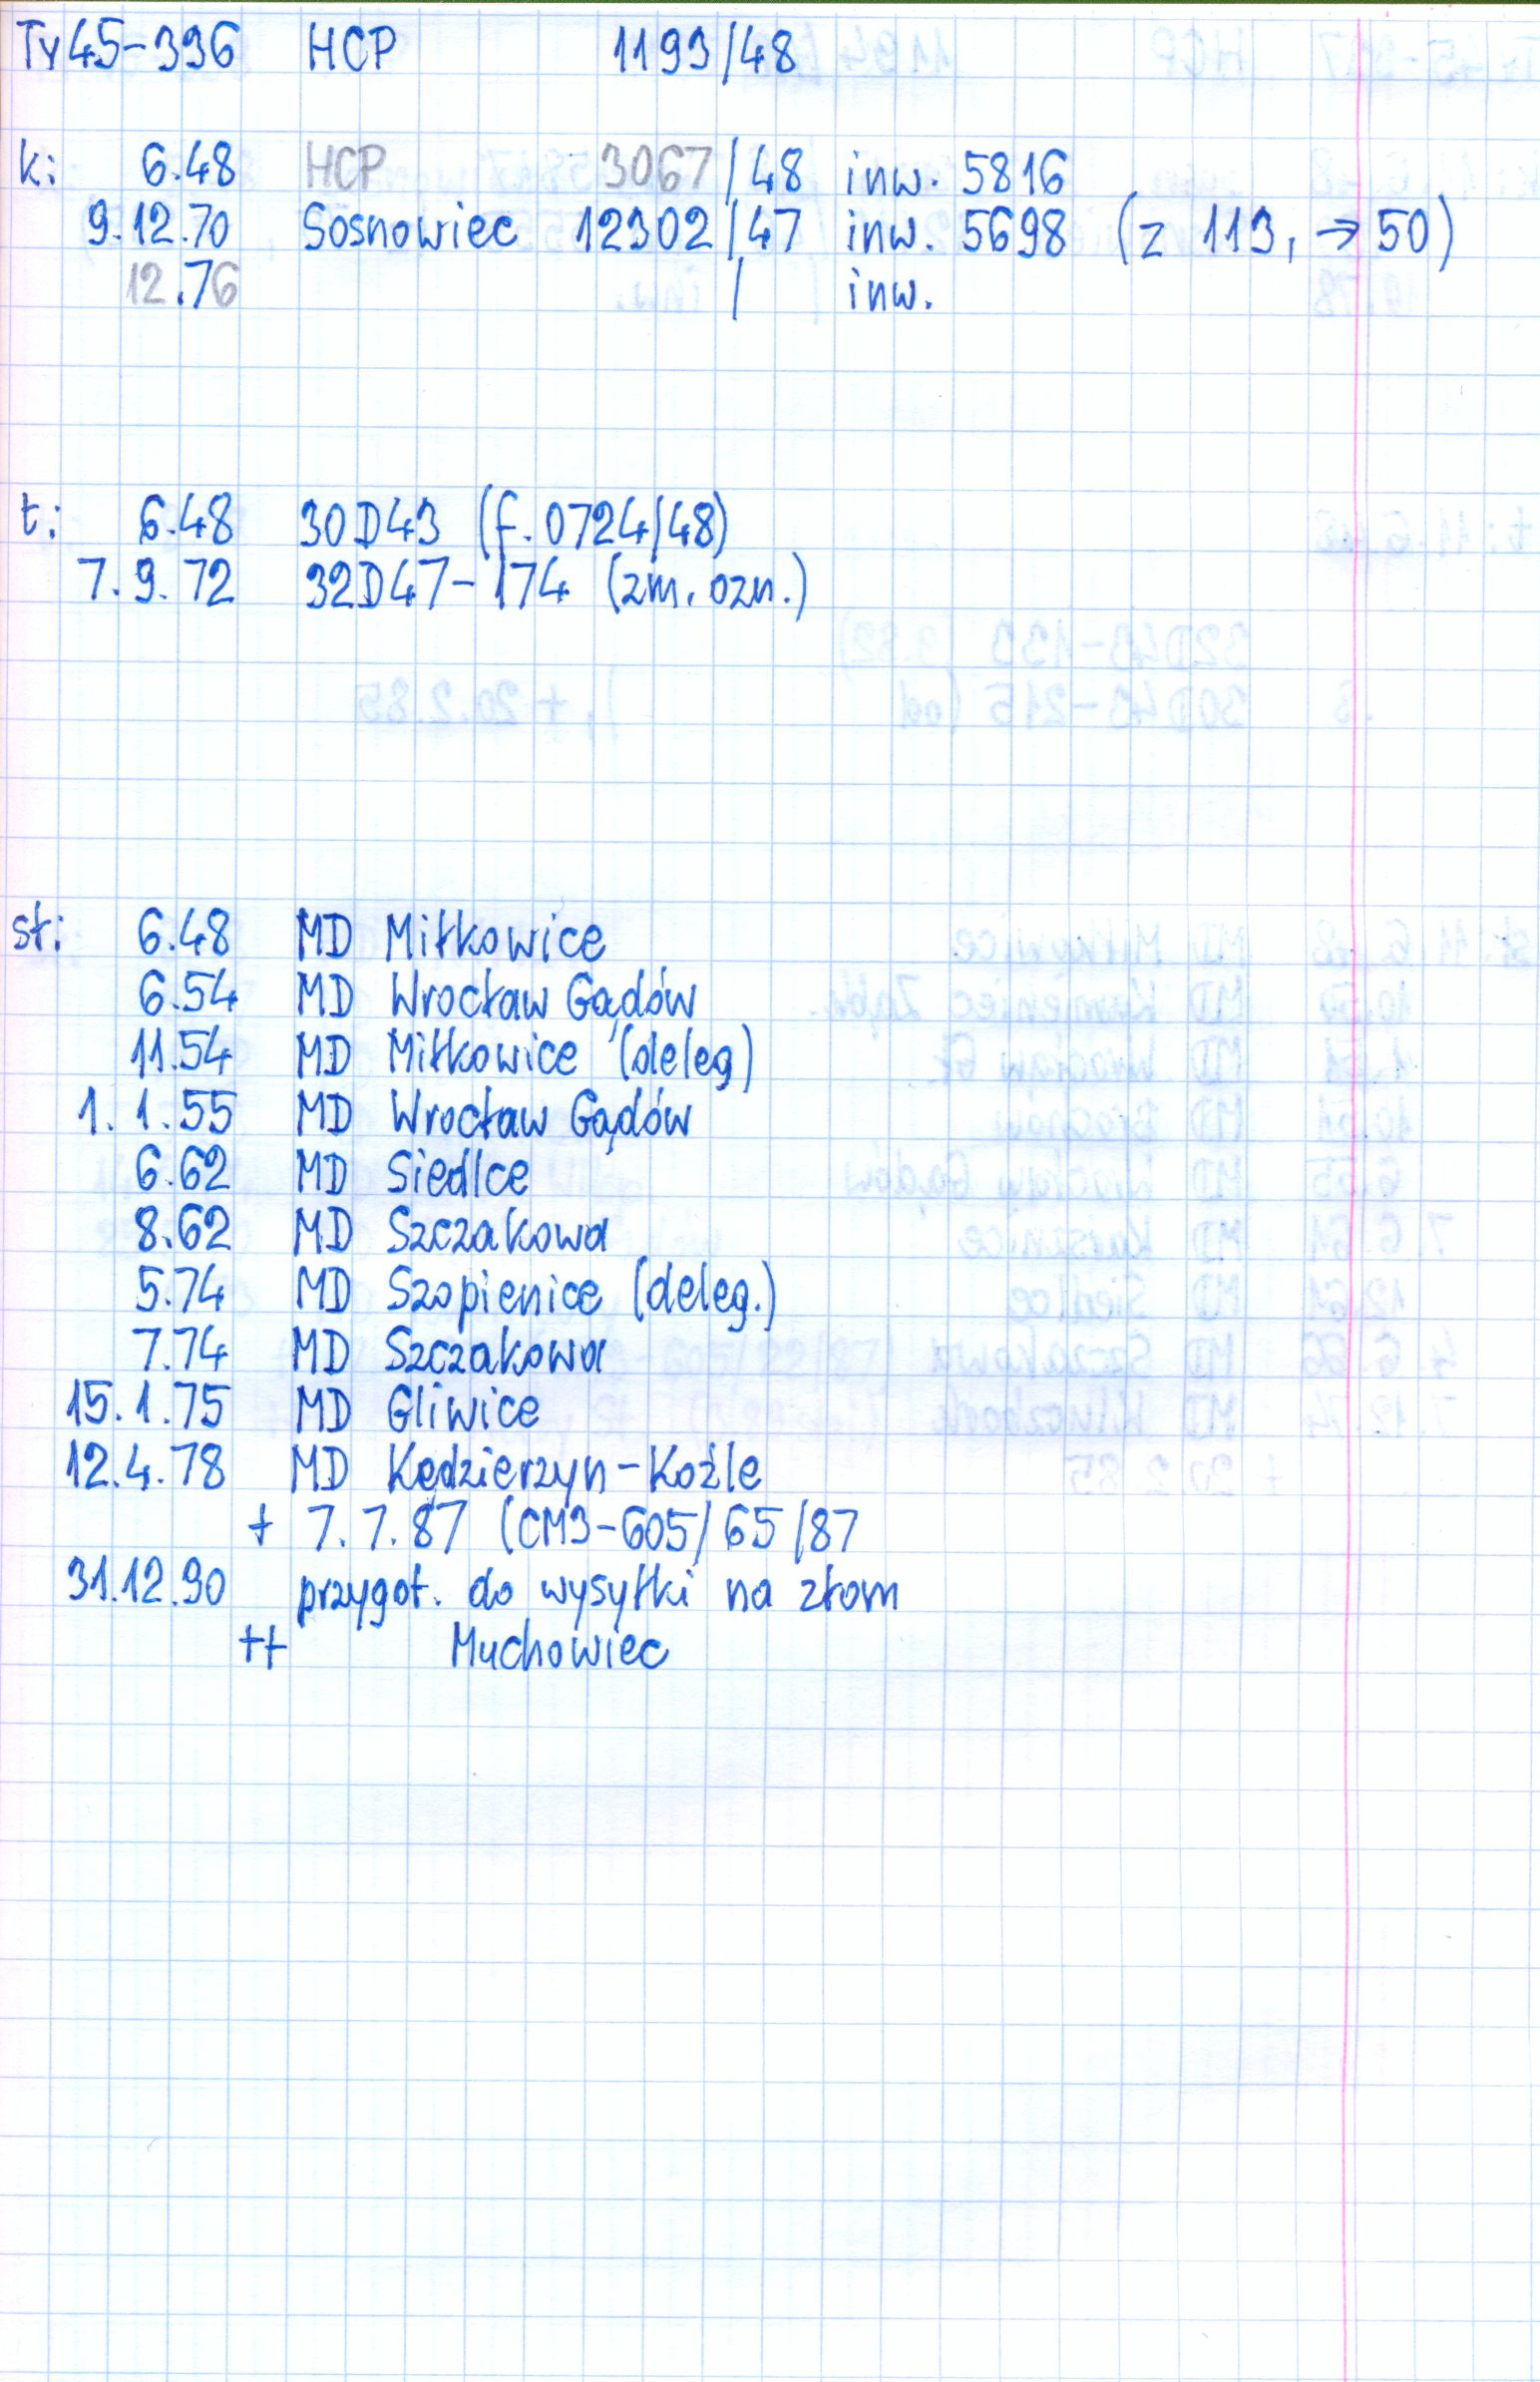 Ty45-396 HCP 1193/48
k: 6.48 HCP 3067/48 inw. 5816
9.12.70 Sosnowiec 12302/47 inw. 5698 (z 113, → 50)
12.76 / inw.
t: 6.48 30D43 (f. 0724/48)
7.9.72 32D47-174 (zm. ozn.)
st: 6.48 MD Miłkowice
6.54 MD Wrocław Gądów
11.54 MD Miłkowice (deleg)
1.1.55 MD Wrocław Gądów
6.62 MD Siedlce
8.62 MD Szczakowa
5.74 MD Szopienice (deleg.)
7.74 MD Szczakowa
15.1.75 MD Gliwice
12.4.78 MD Kędzierzyn-Koźle
+ 7.7.87 (CM3-605/65/87
31.12.90 przygot. do wysyłki na złom
++ Muchowiec